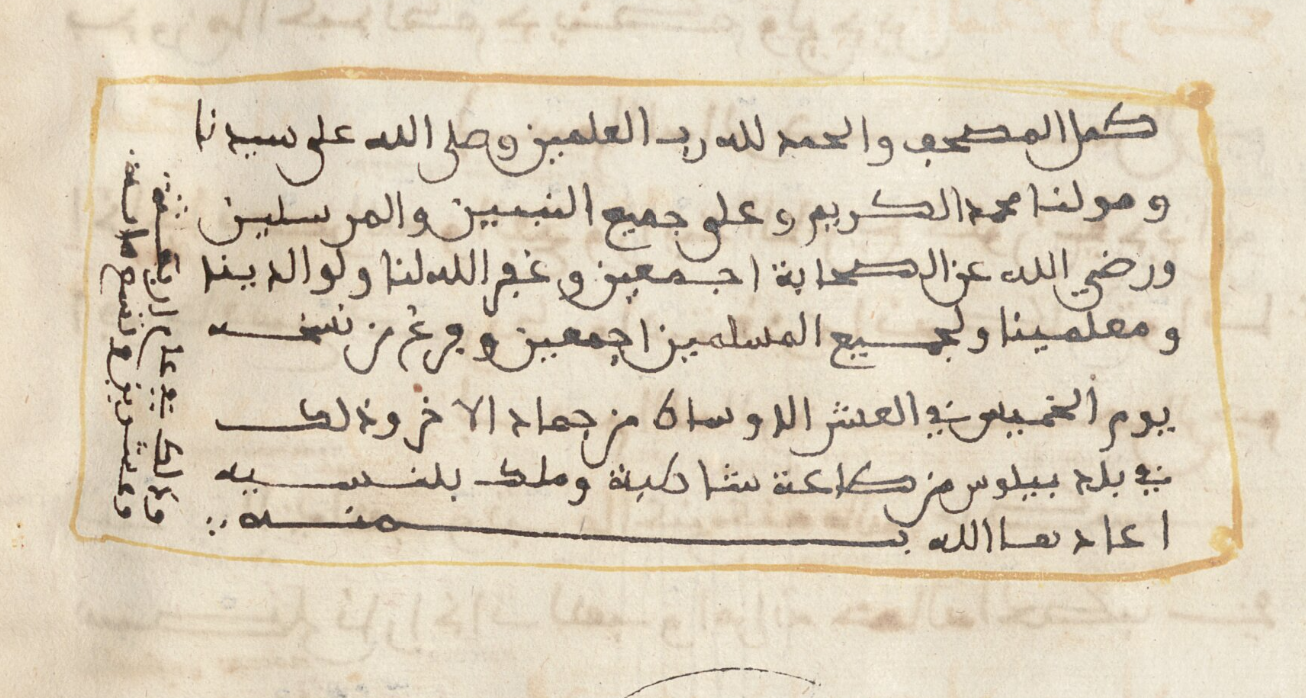 كمل المصحف والحمد لله رب العلمين وصلى الله على سيدنا
ومولنا محمد الكريم وعلى جميع النبيين والمرسلين
ورضي الله عن الصحابة اجمعين وغفر الله لنا ولوالدينا
ومعلمينا ولجميع المسلمين اجمعين وفرغ من نسخه
يوم الخميس في العشر الاوساط من جماد الاخر وذلك
في بلد بيلوس من طاعة شاطبة وملك بلنسيه
اعادها الله بمنه
وذلك في عام اربعة
وعشرين وتسع مائة